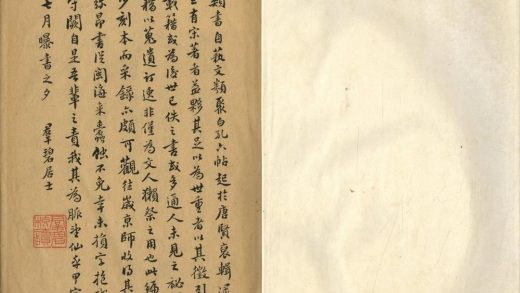 類書自藝文類聚白孔六帖起於唐賢裒輯
有宋著者益夥其足以為世重者以其徵引
載籍或為後世已佚之書或多通人未見之祕
藉以蒐遺訂逸非僅為文人獺祭之用也此編
少刻本而采錄亦頗可觀往歲京師收得其
弥昂書從閩海来蠹蝕不免幸未損字抱
守闕自是吾輩之責我其為脈望仙乎甲
七月曝書之夕 羣碧居士